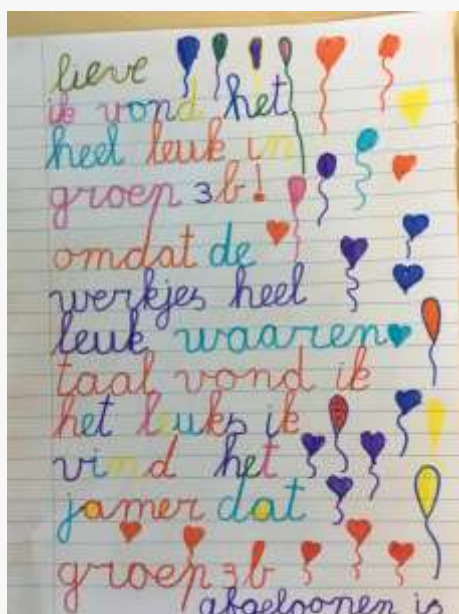 lieve
ik vond het
heel leuk in
groep 3b!
omdat de
werkjes heel
leuk waaren
taal vond ik
het leuks ik
vind het
jamer dat
groep 3b
afgeloopen is